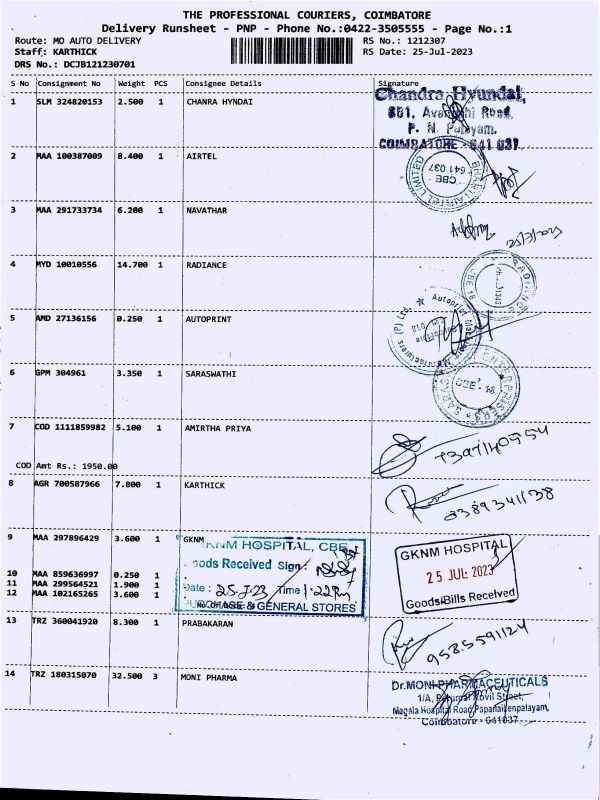 THE PROFESSIONAL COURIERS, COIMBATORE
Delivery Runsheet - PNP - Phone No.:0422-3505555 - Page No.:1
Route: MO AUTO DELIVERY
RS No.: 1212307
Staff: KARTHICK
RS Date: 25-Jul-2023
DRS No.: DCJB121230701
S No Consignment No Weight PCS Consignee Details Signature
1 SLM 324820153 2.500 1 CHANRA HYNDAI
Chandra Hyundai,
P. N. Palayam,
COIMBATORE - 641 037
2 MAA 100387009 8.400 1 AIRTEL
BHARTI AIRTEL LIMITED
CBE-
641 037
3 MAA 291733734 6.200 1 NAVATHAR
4 MYD 10010556 14.700 1 RADIANCE
RADIANCE
5 AMD 27136156 0.250 1 AUTOPRINT
Autoprint
6 GPM 304961 3.350 1 SARASWATHI
ENTERPRISERS
CBE - 18
7 COD 1111859982 5.100 1 AMIRTHA PRIYA
7397140954
COD Amt Rs.: 1950.00
8 AGR 700587966 7.800 1 KARTHICK
8389341138
9 MAA 297896429 3.600 1 GKNM
GKNM HOSPITAL, CBE
Goods Received Sign:
Date: 25-7-23 Time 1.22Pm
PURCHASE & GENERAL STORES
GKNM HOSPITAL
25 JUL 2023
Goods/Bills Received
10 MAA 859636997 0.250 1
11 MAA 299564521 1.900 1
12 MAA 102165265 3.600 1
13 TRZ 360041920 8.300 1 PRABAKARAN
9585591124
14 TRZ 180315070 32.500 3 MONI PHARMA
Dr.MONI PHARMACEUTICALS
1/A, Perumal Kovil Street,
Magala Hospital Road, Papanaickenpalayam,
Coimbatore - 641037.